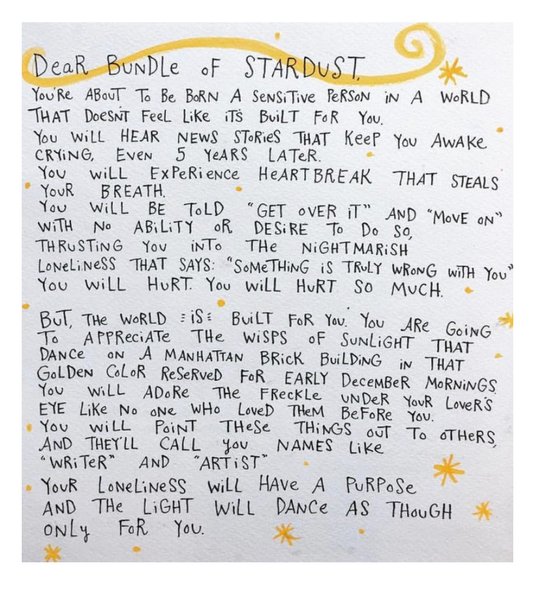 Dear Bundle of Stardust,
You're about to be born a sensitive person in a world
that doesn't feel like it's built for you.
You will hear news stories that keep you awake
crying, even 5 years later.
You will experience heartbreak that steals
your breath.
You will be told "get over it" and "move on"
with no ability or desire to do so,
thrusting you into the nightmarish
loneliness that says: "something is truly wrong with you"
You will hurt. You will hurt so much.
But, the world is built for you. You are going
to appreciate the wisps of sunlight that
dance on a Manhattan brick building in that
golden color reserved for early December mornings
You will adore the freckle under your lover's
eye like no one who loved them before you.
You will point these things out to others,
and they'll call you names like
"writer" and "artist"
Your loneliness will have a purpose
and the light will dance as though
only for you.